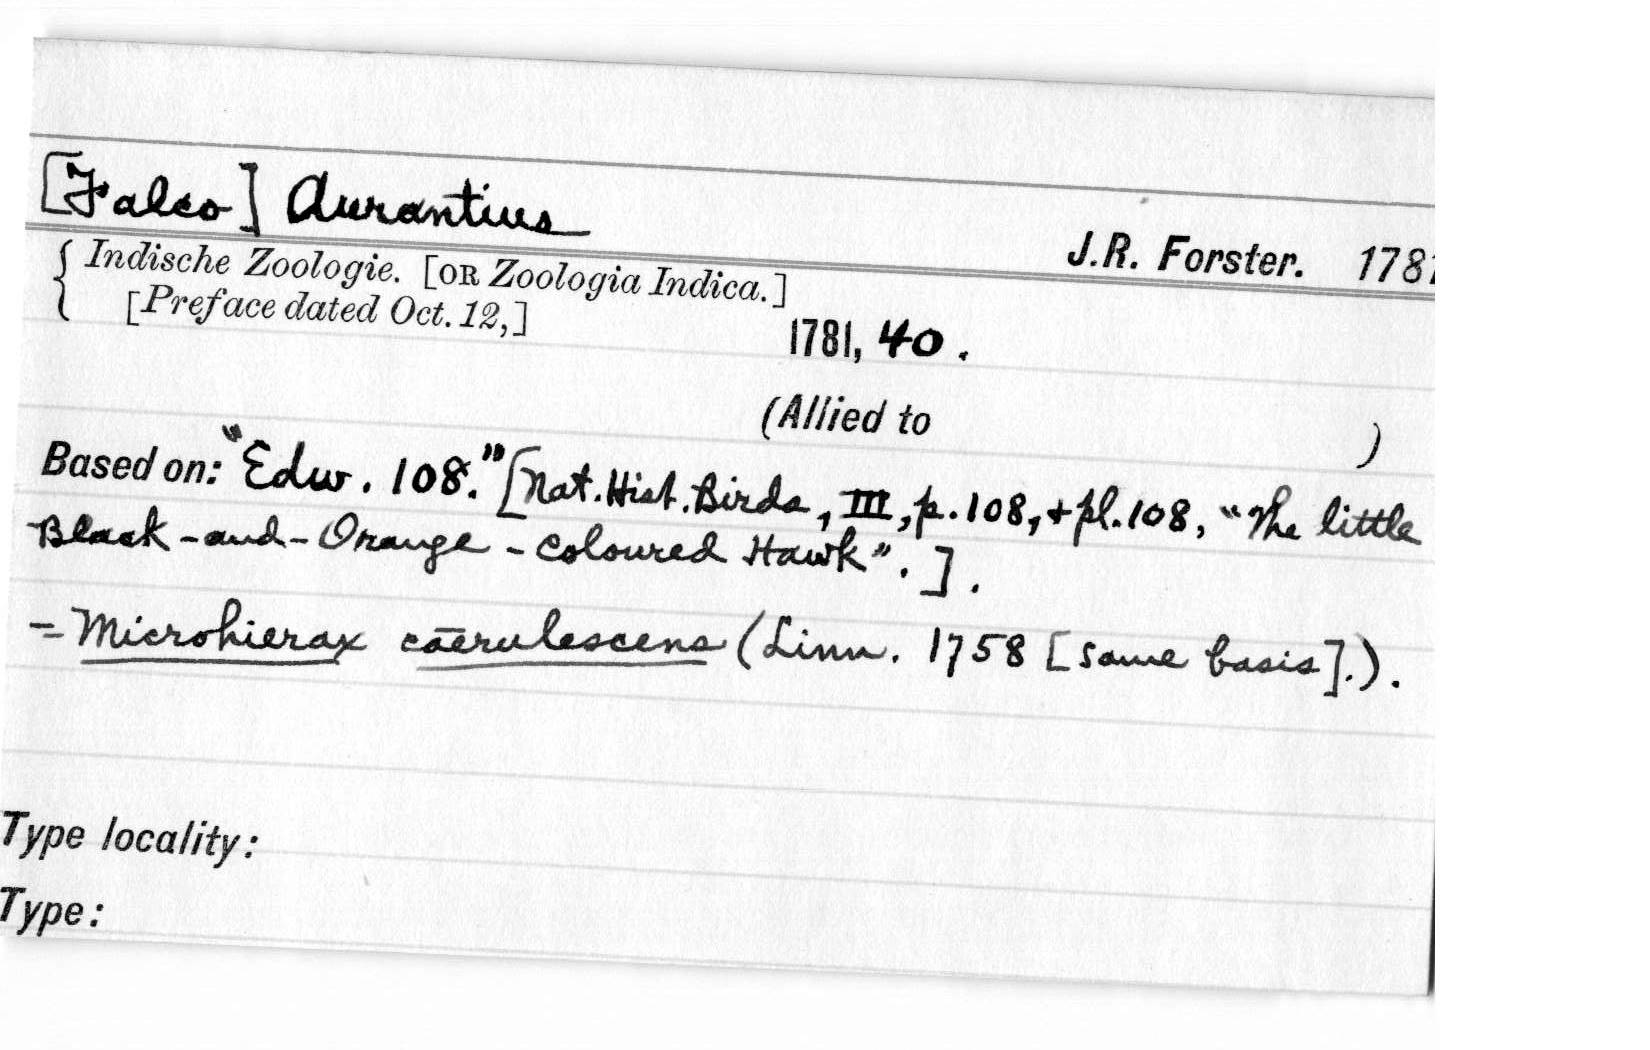 [Falco] Aurantius
J.R. Forster. 1781
{ Indische Zoologie. [OR Zoologia Indica.]
[Preface dated Oct. 12,]
1781, 40.
(Allied to )
Based on: "Edw. 108." [Nat. Hist. Birds, III, p. 108, + pl. 108, "The little
Black-and-Orange-coloured Hawk".].
= Microhierax cāerulescens (Linn. 1758 [same basis].).
Type locality:
Type: